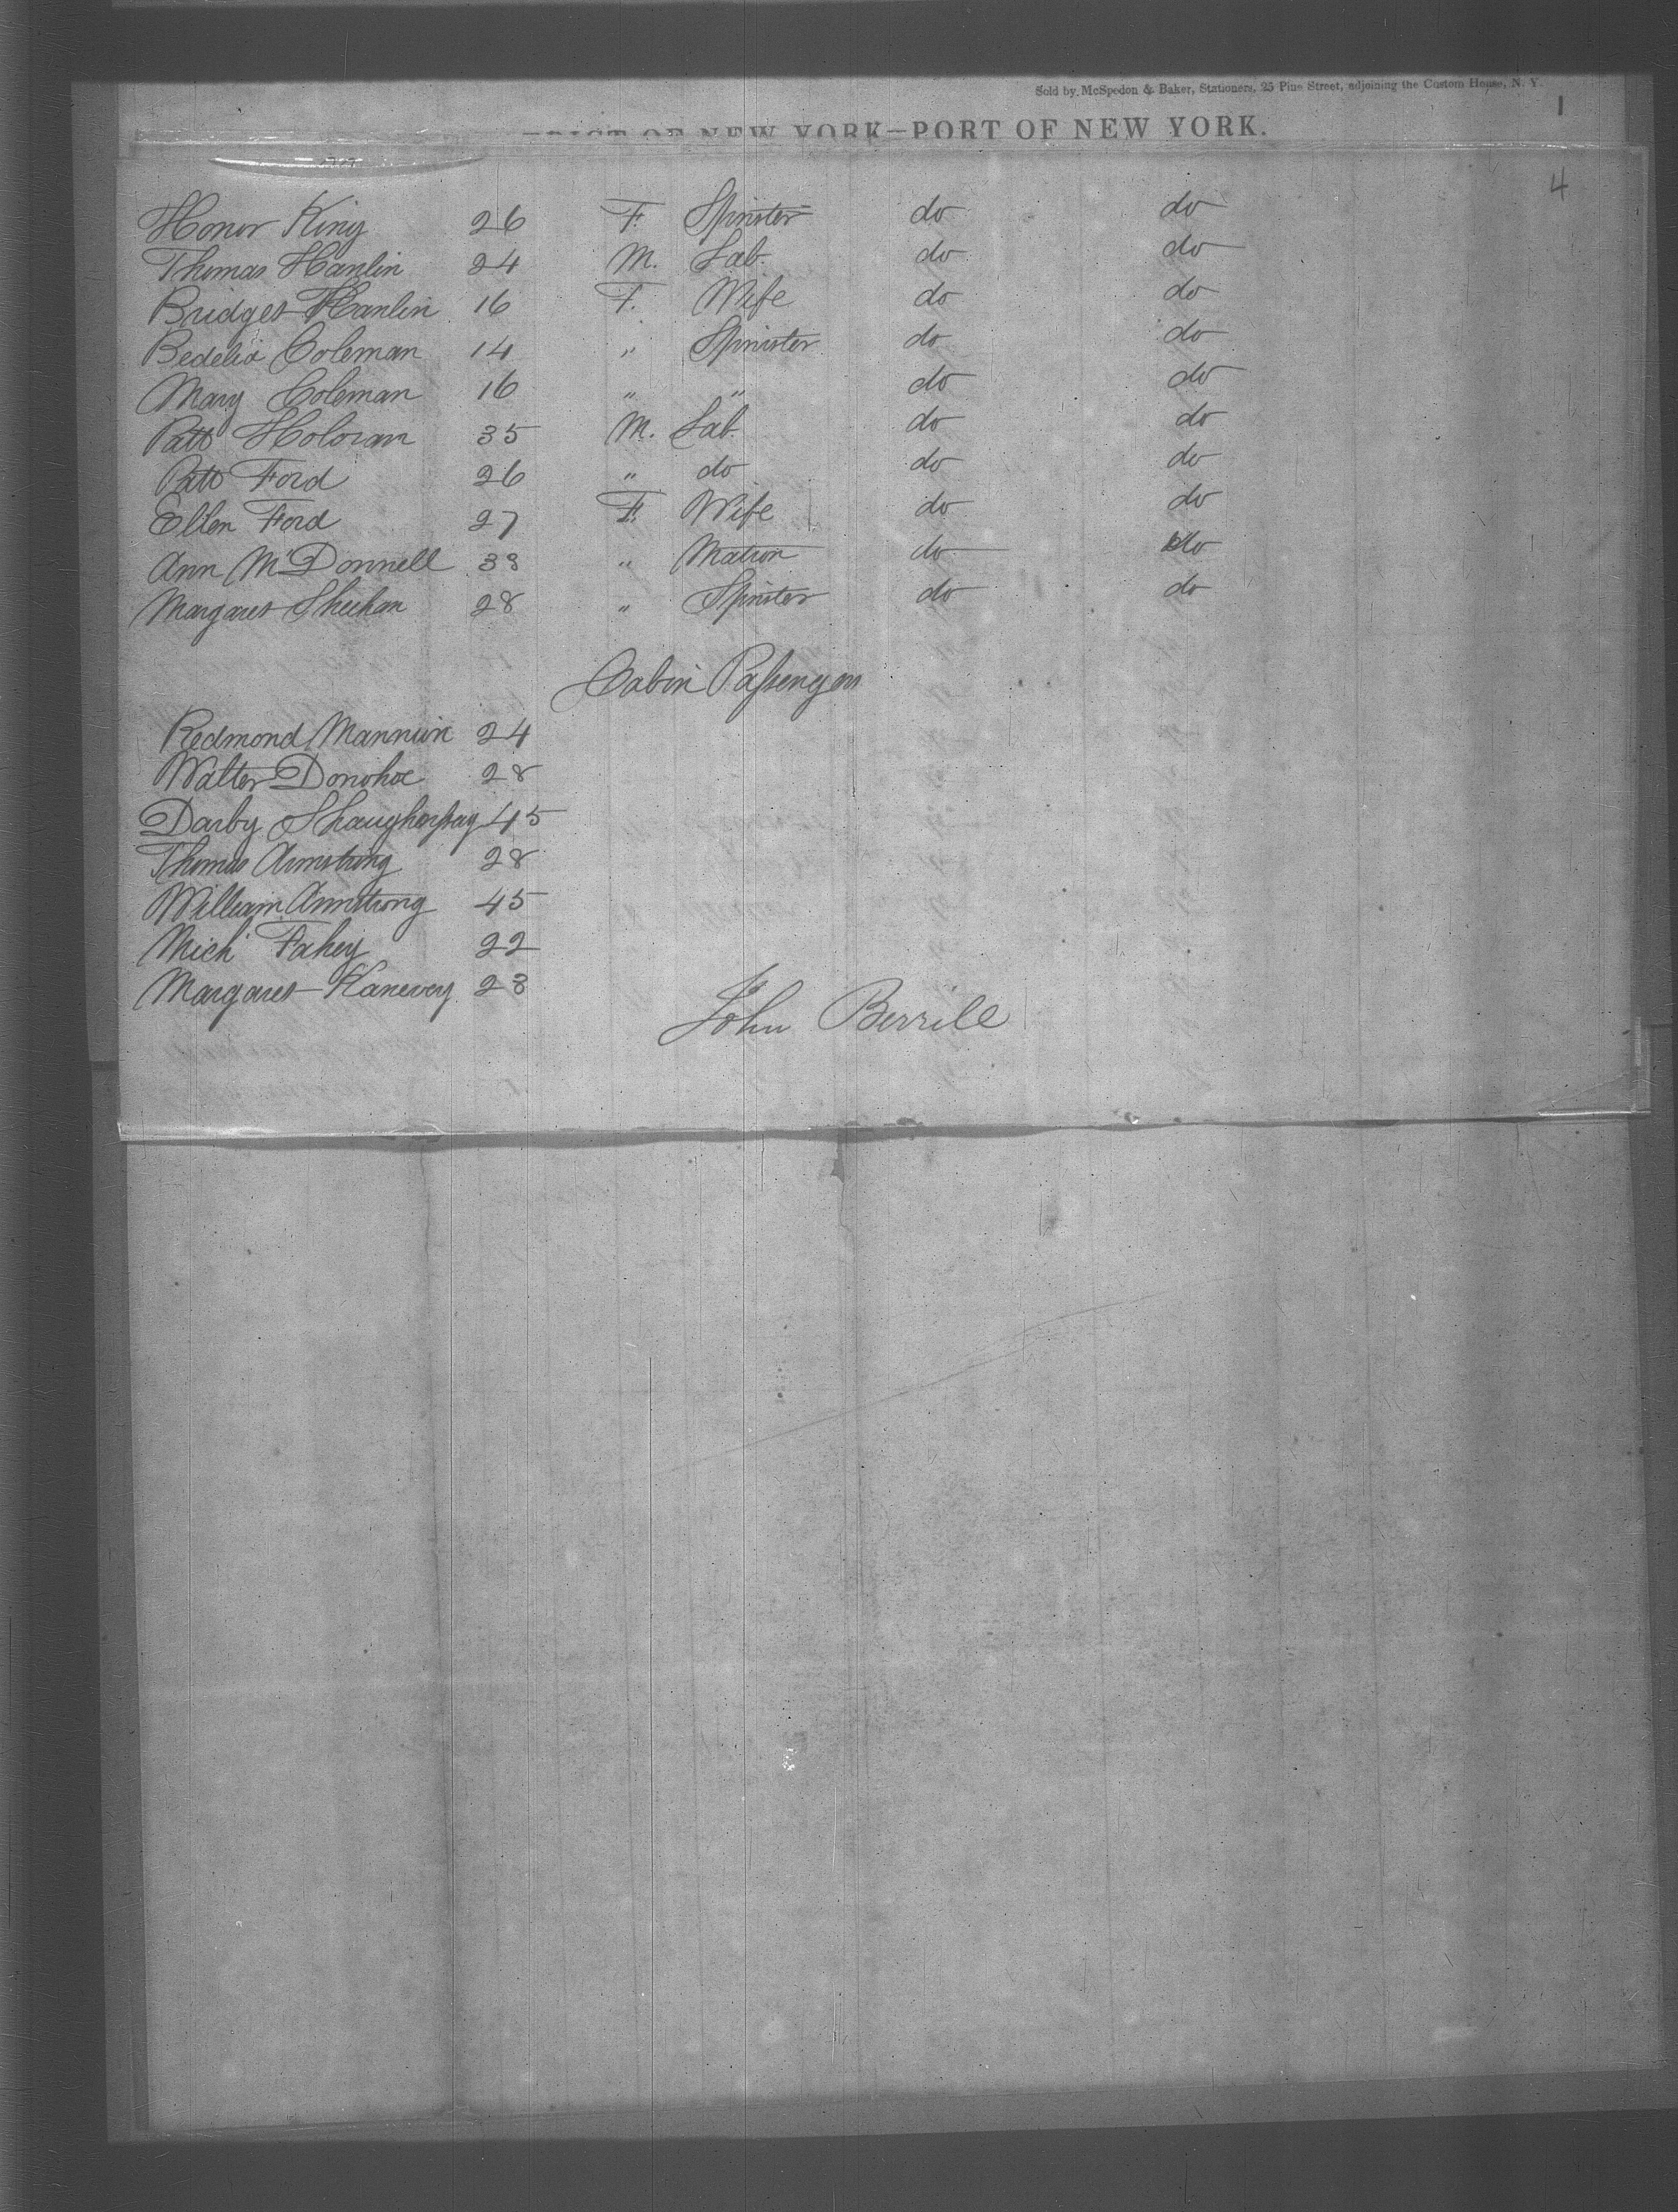 Sold by McSpedon & Baker, Stationers, 25 Pine Street, adjoining the Custom House, N. Y.
1
DIST OF NEW YORK—PORT OF NEW YORK.
4
Honor King 26 F. Spinster do do
Thomas Hanlin 24 M. Lab. do do
Bridget Hanlin 16 F. Wife do do
Bedelia Coleman 14 " Spinster do do
Mary Coleman 16 " " do do
Patt Holoran 35 M. Lab. do do
Patt Ford 26 " do do do
Ellen Ford 27 F. Wife do do
Ann McDonnell 33 " Matron do do
Margaret Sheehan 28 " Spinster do do
Cabin Passengers
Redmond Mannion 24
Walter Donohoe 28
Darby 45
Thomas Armstrong 28
William Armstrong 45
Mich Fahey 22
Margaret 23
John Berrill